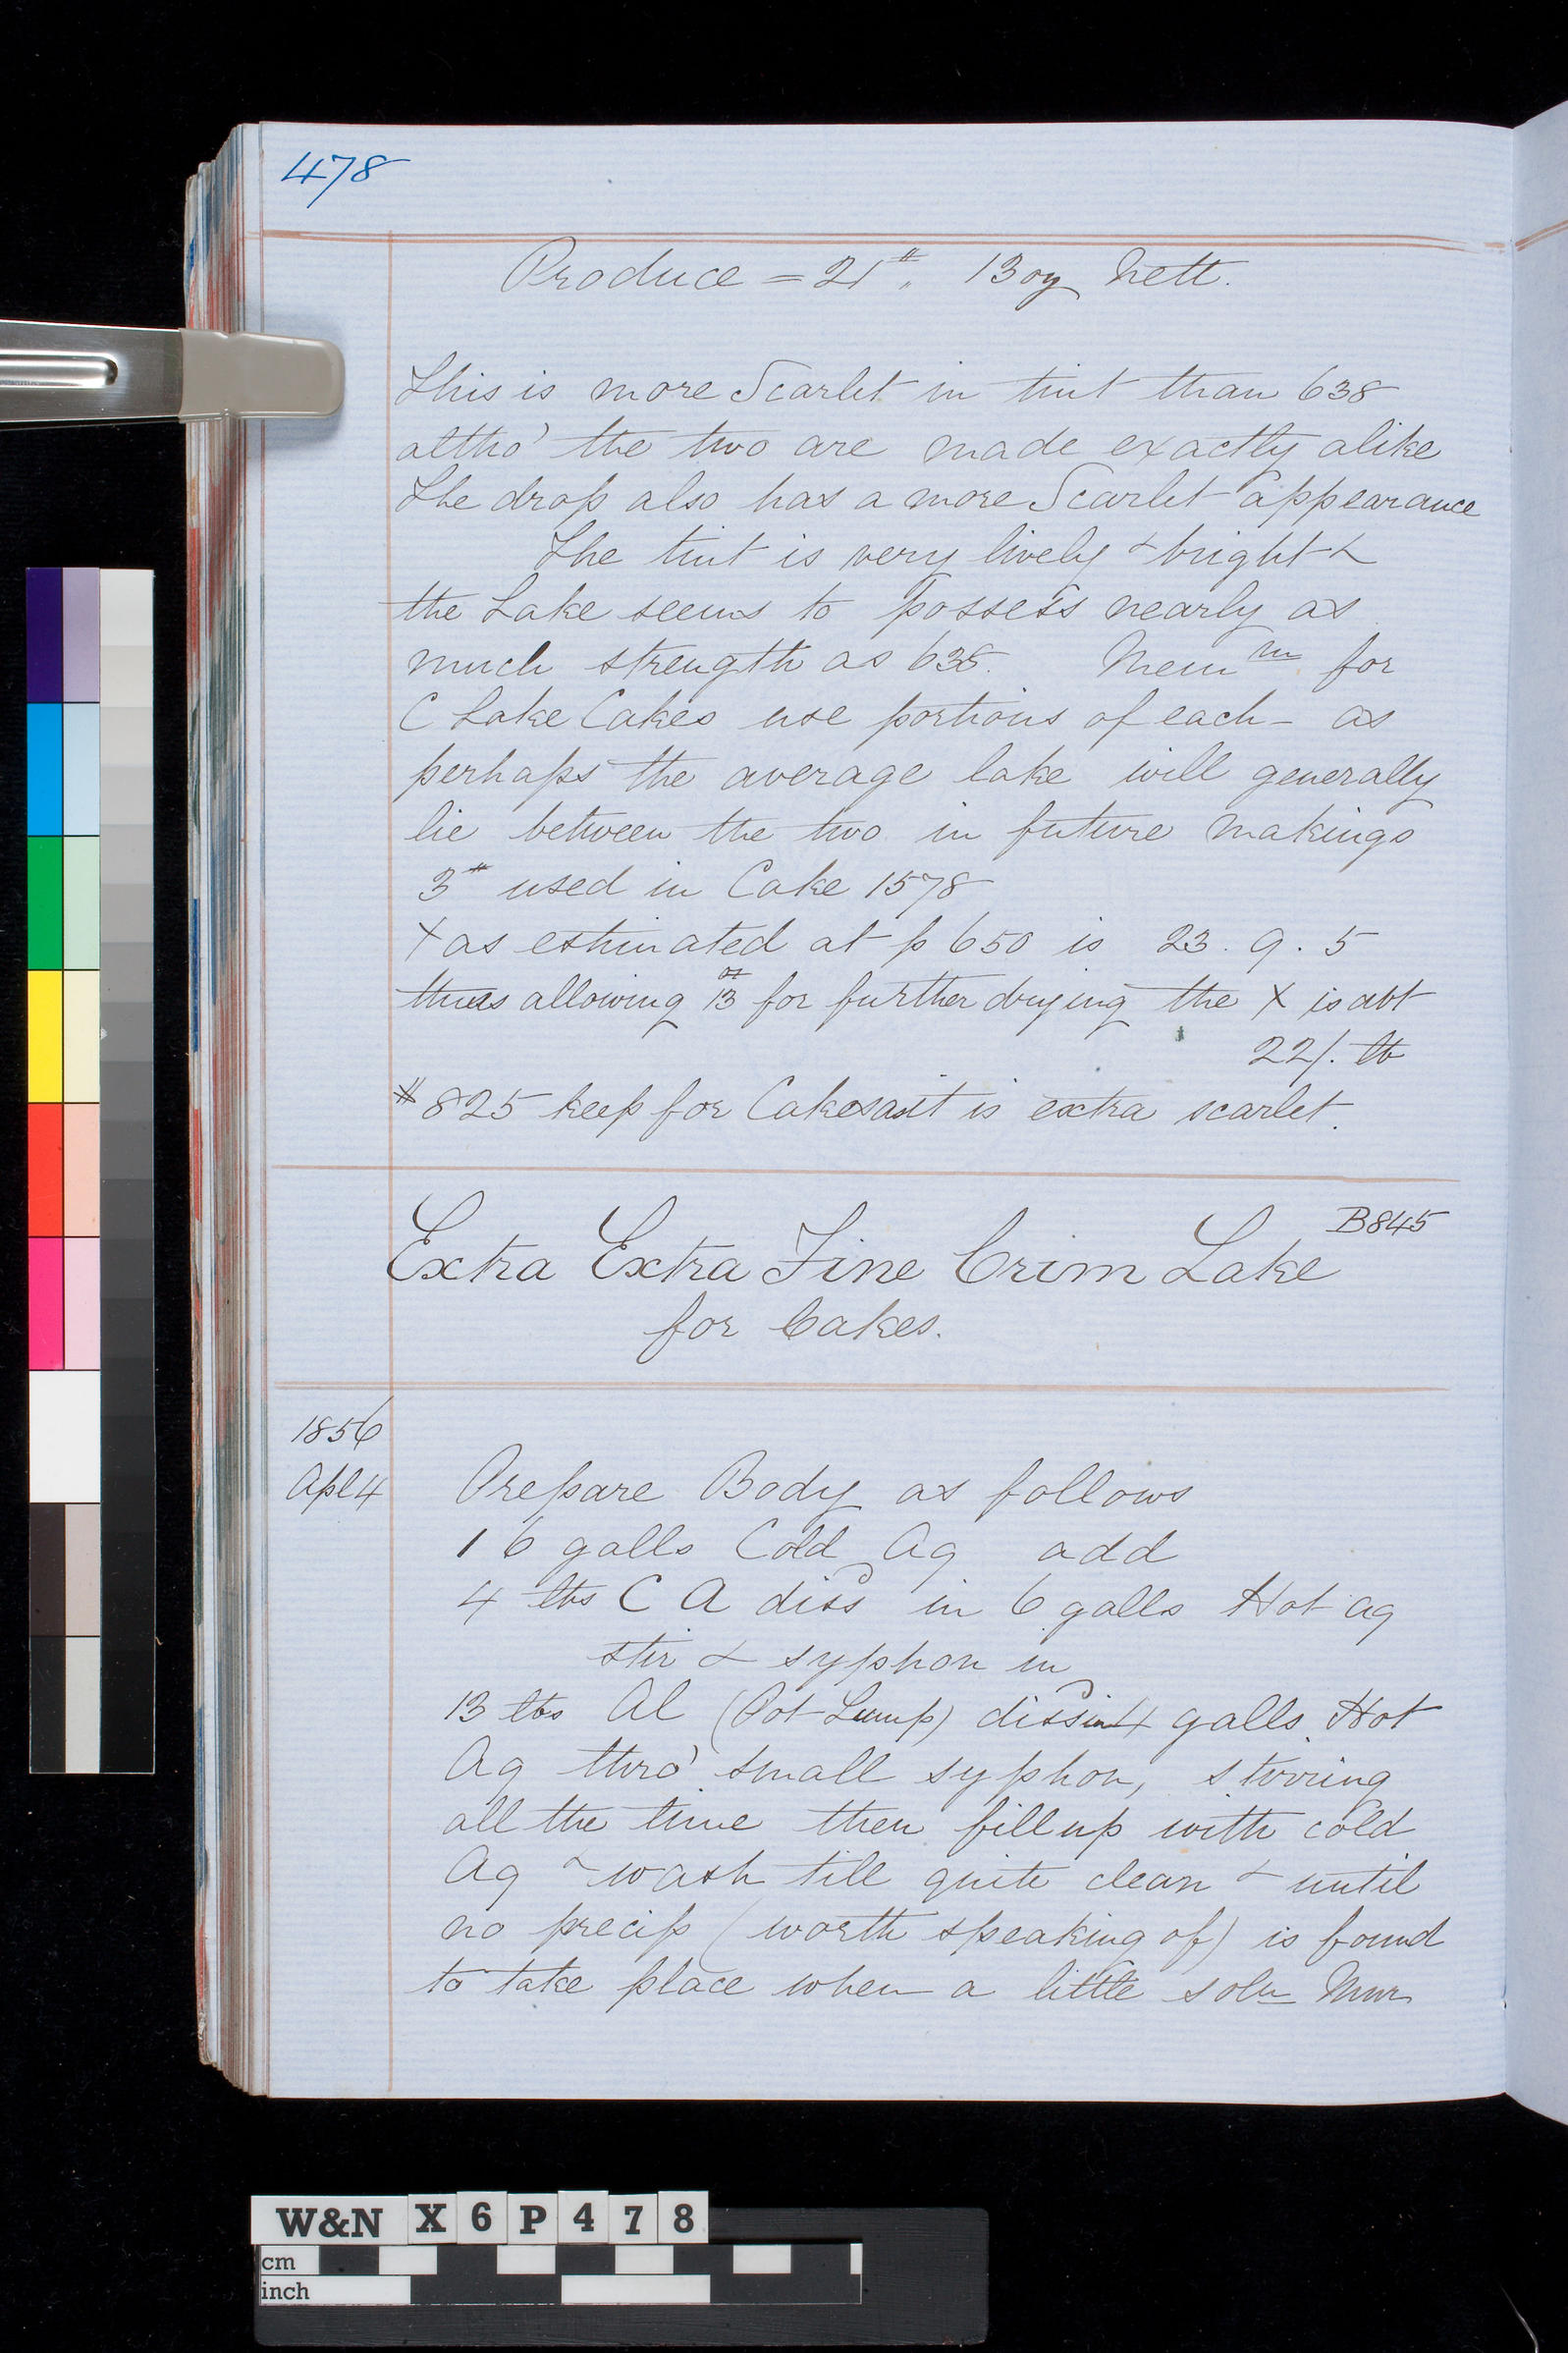 478
Produce = 21 #. 13 oz Nett.
This is more Scarlet in tint than 638
altho' the two are made exactly alike
The drop also has a more Scarlet appearance
The tint is very lively & bright &
the Lake seems to possess nearly as
much strength as 638. Mem m for
C Lake Cakes use portions of each - as
perhaps the average lake will generally
lie between the two in future makings
3# used in Cake 1578
X as estimated at p 650 is 23. 9. 5
thus allowing 13 oz for further drying the X is abt
22/. lb
# 825 keep for Cakes as it is extra scarlet.
B845
Extra Extra Fine Crim Lake
for Cakes.
1856
Apl 4 Prepare Body as follows
16 galls Cold Aq add
4 lbs C A dissd in 6 galls Hot aq
stir & syphon in
13 lbs Al (Pot Lump) dissd in 4 galls Hot
Aq thro' small syphon, stirring
all the time then fill up with cold
Aq & wash till quite clean & until
no precip (worth speaking of) is found
to take place when a little soln Mur
W&N X 6 P 4 7 8
cm
inch